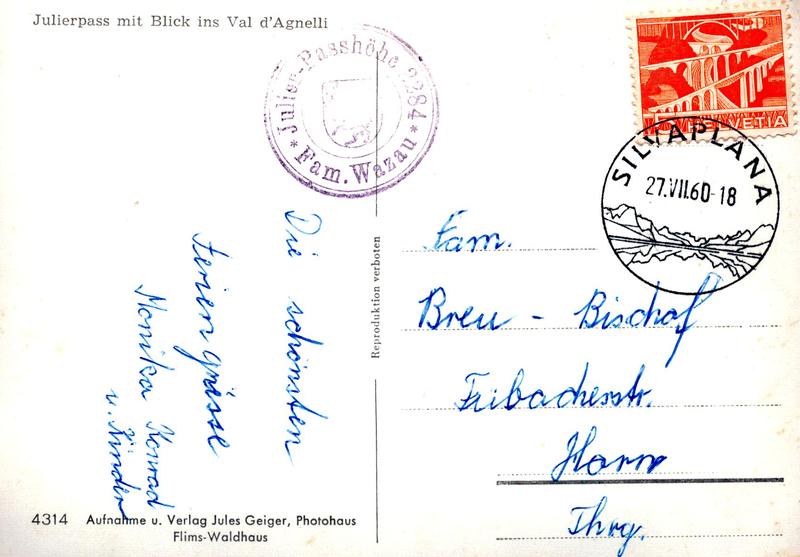 Julierpass mit Blick ins Val d'Agnelli
* Julier-Passhöhe 2284 *
Fam. Wazau
HELVETIA
SILVAPLANA
27.VII.60-18
Die schönsten
Feriengrüsse
Monika Konrad
u. Kinder
Reproduktion verboten
Fam.
Breu - Bischof
Horn
Thrg.
4314 Aufnahme u. Verlag Jules Geiger, Photohaus
Flims-Waldhaus